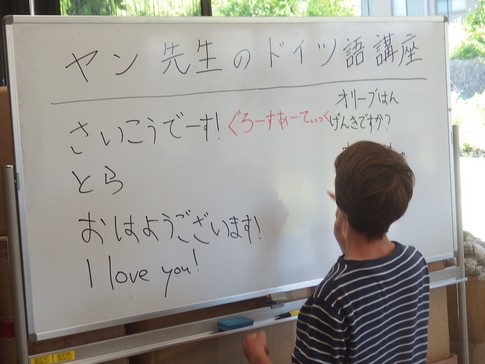 ヤン先生のドイツ語講座
さいこうでーす! ぐろーすあーてぃっく
とら
おはようございます!
I love you!
オリーブはん
げんきですか?